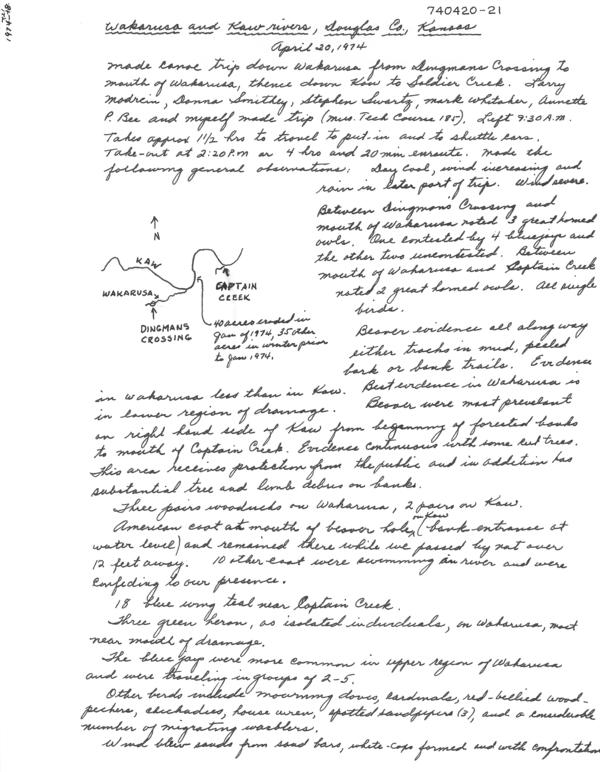 740420-21
1974-48
Wakarusa and Kaw rivers, Douglas Co., Kansas
April 20, 1974
made canoe trip down Wakarusa from Dingmans Crossing to
mouth of Wakarusa, thence down Kaw to Soldier Creek. Larry
Modrcin, Donna Smithey, Stephen Swartz, mark Whitaker, Annette
P. Bee and myself made trip (mus. Tech Course 185). Left 9:30 A.M.
Takes approx 1 1/2 hrs to travel to put-in and to shuttle cars.
Take-out at 2:20 P.m or 4 hrs and 20 min enroute. Made the
following general observations: Day cool, wind increasing and
rain in later part of trip. Wind severe.
Between Dingmans Crossing and
mouth of Wakarusa noted 3 great horned
owls. One contested by 4 bluejays and
the other two uncontested. Between
mouth of Wakarusa and Captain Creek
noted 2 great horned owls. All single
birds.
N
KAW
WAKARUSA
CAPTAIN
CREEK
DINGMANS
CROSSING
40 acres eroded in
Jan of 1974, 35 other
acres in winter prior
to Jan 1974.
Beaver evidence all along way
either tracks in mud, peeled
bark or bank trails. Evidence
in Wakarusa less than in Kaw. Best evidence in Wakarusa is
in lower region of drainage. Beaver were most prevelant
on right hand side of Kaw from beginning of forested banks
to mouth of Captain Creek. Evidence continuous with some cut trees.
This area receives protection from the public and in addition has
substantial tree and limb debris on banks.
Three pairs woodducks on Wakarusa, 2 pairs on Kaw.
American coot at mouth of beaver hole on Kaw (bank-entrance at
water level) and remained there while we passed by not over
12 feet away. 10 other coot were swimming in river and were
confiding to our presence.
18 blue wing teal near Captain Creek.
Three green heron, as isolated individuals, on Wakarusa, most
near mouth of drainage.
The blue jays were more common in upper region of Wakarusa
and were traveling in groups of 2-5.
Other birds include mourning doves, cardinals, red-bellied wood-
peckers, chickadees, house wren, spotted sandpipers (3), and a considerable
number of migrating warblers.
Wind blew sands from sand bars, white-caps formed and with confrontation